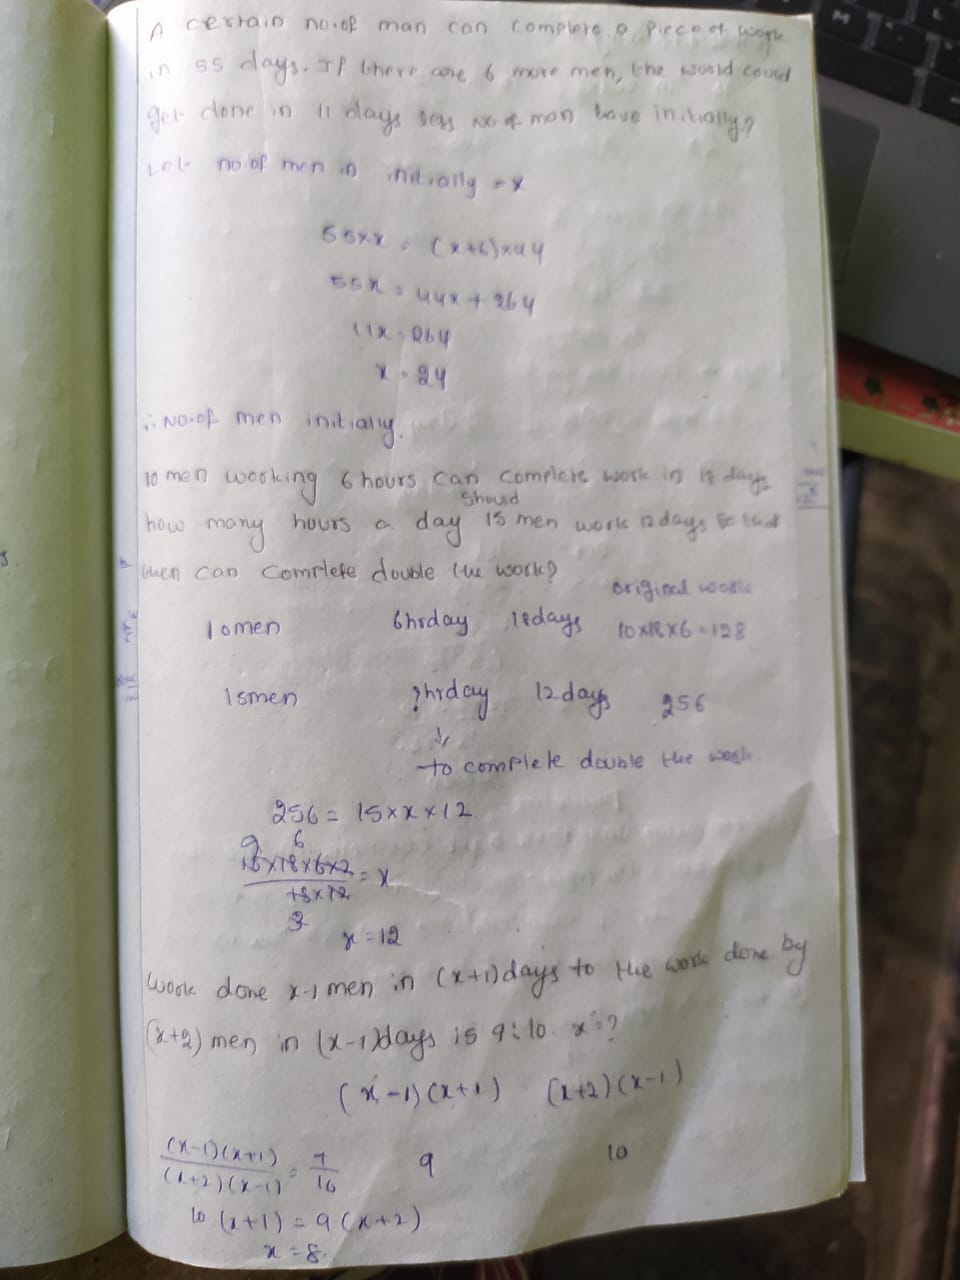 A certain no.of man can complete a piece of work
in 55 days. If there are 6 more men, the world could
get done in 11 days less no of man have initially?
Let no.of men in initially = x
55xx = (x+6)x44
55x = 44x + 264
11x = 264
x = 24
∴ No.of men initially.
10 men working 6 hours can complete work in 18 days
should
how many hours a day 15 men work 12days so that
then can comrlete double the work?
original work
10men 6hrday 18days 10x18x6=128
15men ?hrday 12days 256
↓
to complete double the work.
256 = 15xxx12
9 6
15x18x6x2 = x
15x12
3
x = 12
Work done x-1 men in (x+1)days to the work done by
(x+2) men in (x-1)days is 9:10. x=?
(x-1)(x+1) (x+2)(x-1)
(x-1)(x+1) = 9 10
(x+2)(x-1) 10
10 (x+1) = 9(x+2)
x = 8.